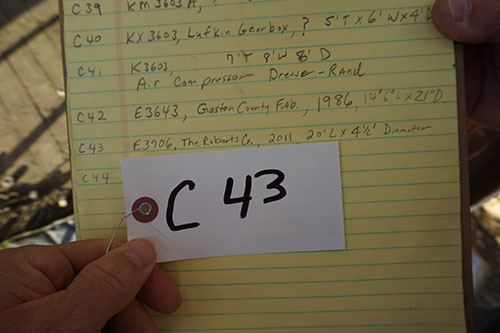 C39 KM3603A, ?
C40 KX3603, Lufkin Gearbox, ? 5'T x 6'W x 4'D
C41 K3603, 7'T 9'W 8'D
Air Compressor Dresser-Rand
C42 E3643, Gaston County Fab., 1986, 14'6"L x 21"D
C43 E3706, The Roberts Co., 2011, 20'L x 4½' Diameter
C44
C 43